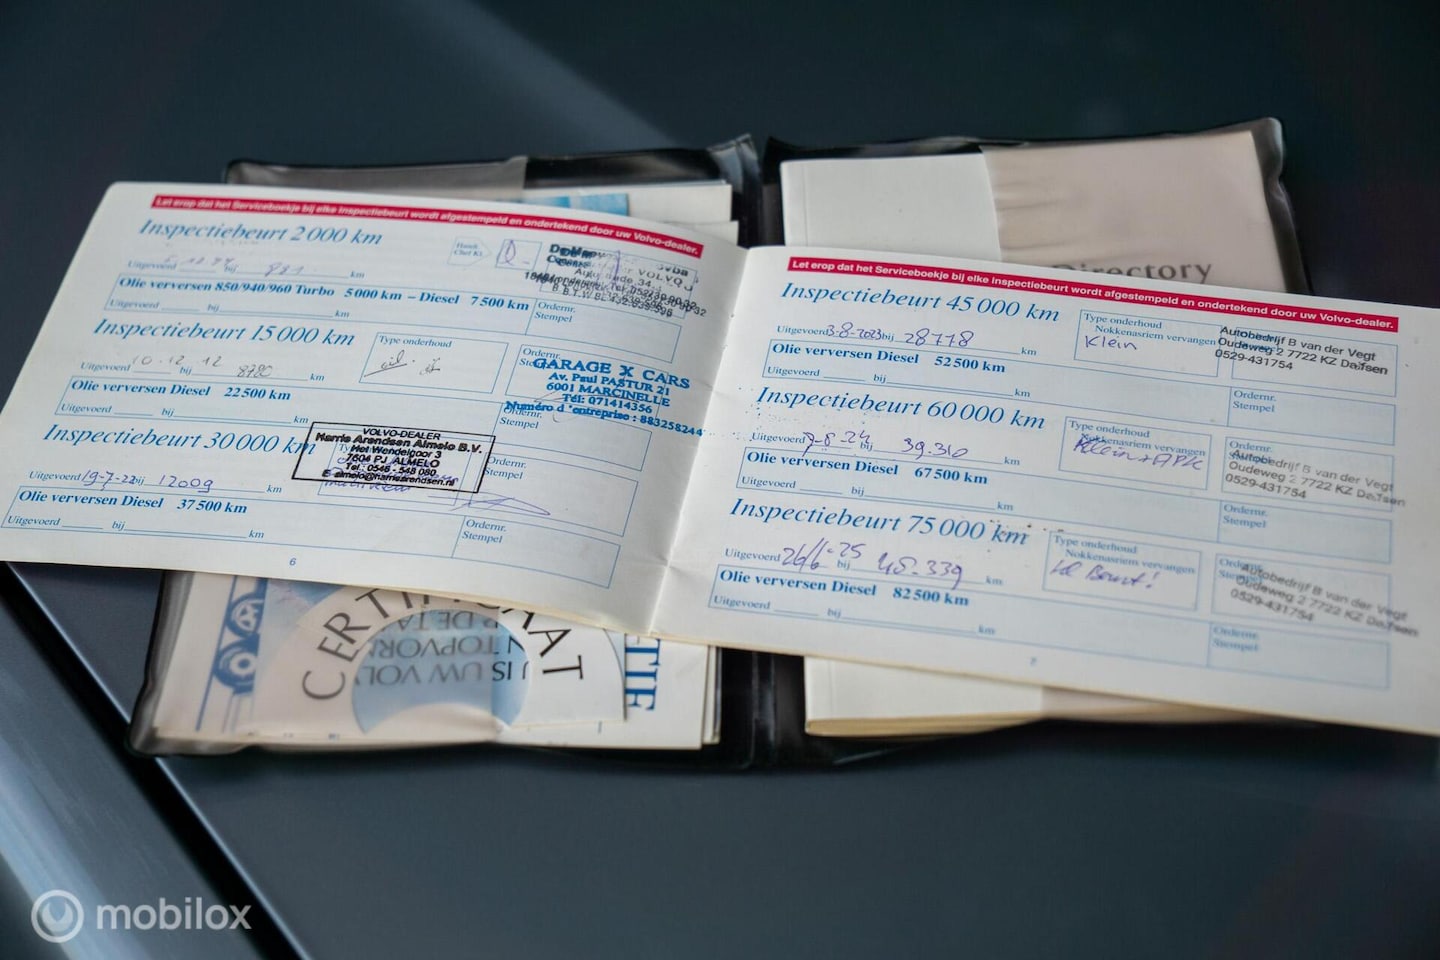 Let erop dat het Serviceboekje bij elke Inspectiebeurt wordt afgestempeld en ondertekend door uw Volvo-dealer.
Inspectiebeurt 2 000 km
Uitgevoerd bij 981 km
Olie verversen 850/940/960 Turbo 5 000 km – Diesel 7 500 km
Uitgevoerd bij km
Ordernr.
Stempel
Inspectiebeurt 15 000 km
Type onderhoud
Uitgevoerd 10-12-12 bij 8780 km
Ordernr.
GARAGE X CARS
Av. Paul PASTUR 21
6001 MARCINELLE
Tél: 071414356
Numéro d'entreprise : 883258244
Olie verversen Diesel 22 500 km
Uitgevoerd bij km
Ordernr.
Stempel
Inspectiebeurt 30 000 km
VOLVO-DEALER
Harrie Arendsen Almelo B.V.
Het Wendelgoor 3
7604 PJ ALMELO
Tel.: 0546 - 548 080
E: almelo@harriearendsen.nl
Uitgevoerd 19-7-22 bij 12009 km
Ordernr.
Stempel
Olie verversen Diesel 37 500 km
Uitgevoerd bij km
Ordernr.
Stempel
6
Let erop dat het Serviceboekje bij elke Inspectiebeurt wordt afgestempeld en ondertekend door uw Volvo-dealer.
Inspectiebeurt 45 000 km
Type onderhoud
Nokkenasriem vervangen
Klein
Uitgevoerd 3-8-2023 bij 28778 km
Autobedrijf B van der Vegt
Oudeweg 2 7722 KZ Dalfsen
0529-431754
Olie verversen Diesel 52 500 km
Uitgevoerd bij km
Ordernr.
Stempel
Inspectiebeurt 60 000 km
Type onderhoud
Nokkenasriem vervangen
Klein + APK
Uitgevoerd 7-8-24 bij 39.310 km
Ordernr.
Autobedrijf B van der Vegt
Oudeweg 2 7722 KZ Dalfsen
0529-431754
Olie verversen Diesel 67 500 km
Uitgevoerd bij km
Ordernr.
Stempel
Inspectiebeurt 75 000 km
Type onderhoud
Nokkenasriem vervangen
Uitgevoerd 26/6-25 bij 45.339 km
Autobedrijf B van der Vegt
Oudeweg 2 7722 KZ Dalfsen
0529-431754
Olie verversen Diesel 82 500 km
Uitgevoerd bij km
Ordernr.
Stempel
Directory
CERTIFICAAT
IS UW VOLVO
mobilox